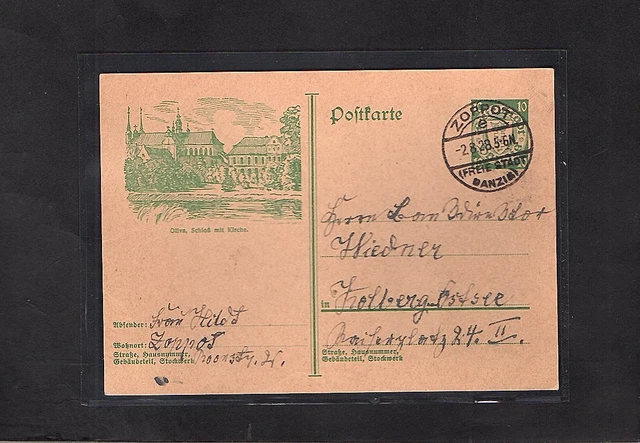 Postkarte
10
ZOPPOT
e
-2.8.28.5-6N.
(FREIE STADT
DANZIG)
Oliva, Schloß mit Kirche.
Herrn Bankdirektor
Wiedner
in Kolberg Ostsee
Kaiserplatz 24. II.
Straße, Hausnummer,
Gebäudeteil, Stockwerk
Absender: Frau Hildt
Wohnort: Zoppot
Straße, Hausnummer,
Gebäudeteil, Stockwerk